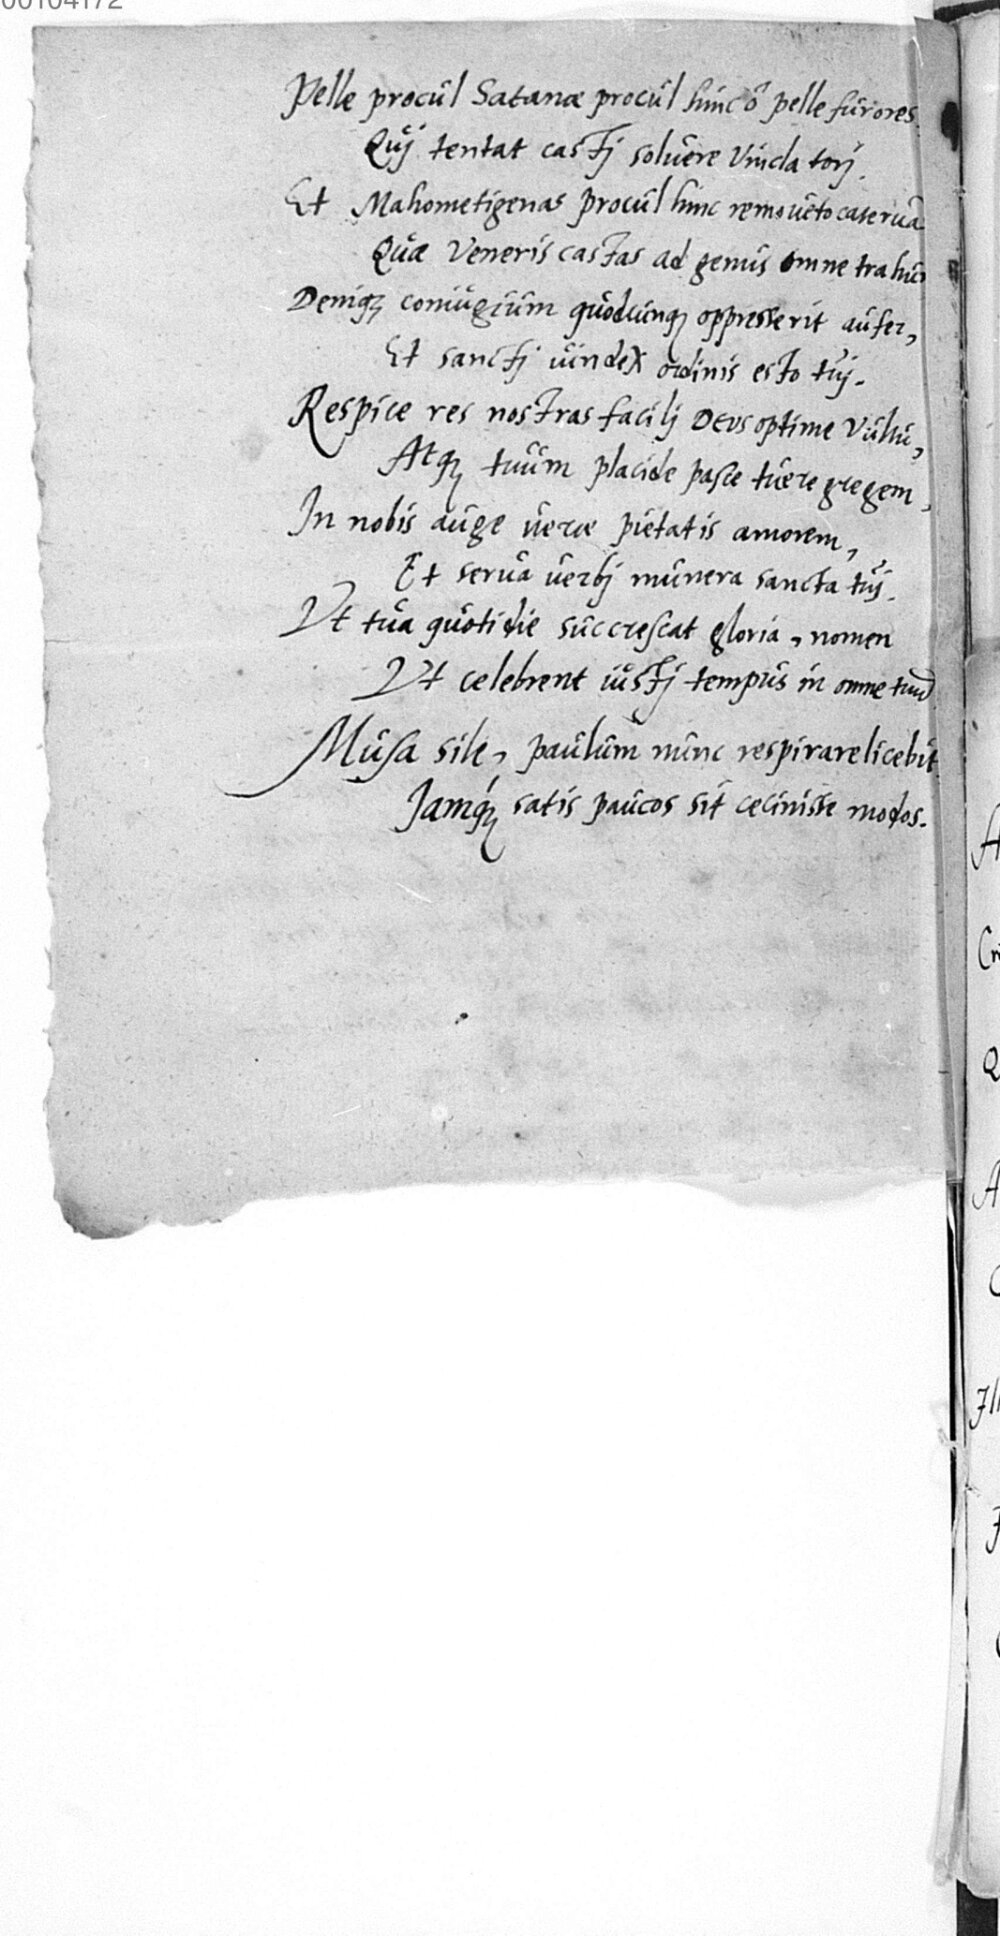 00104172
Pelle procul Satanæ procul hinc ô pelle furores
Quj tentat castj soluere Vincla torj.
Et Mahometigenas procul hinc remoueto cateruã
Quæ Veneris castas ad genus omne trahit
Deniq; coniugium quodcunq; oppresserit aufer,
Et sanctj uindex ordinis esto tuj.
Respice res nostras facilj Deus optime Vultu,
Atq; tuum placide pasce tuere gregem,
In nobis auge ueræ pietatis amorem,
Et serua uerbj munera sancta tuj.
Vt tua quotidie succrescat gloria, nomen
Vt celebrent iustj tempus in omne tuũ
Musa sile, paulum nunc respirare licebit
Jamq; satis paucos sit cecinisse modos.